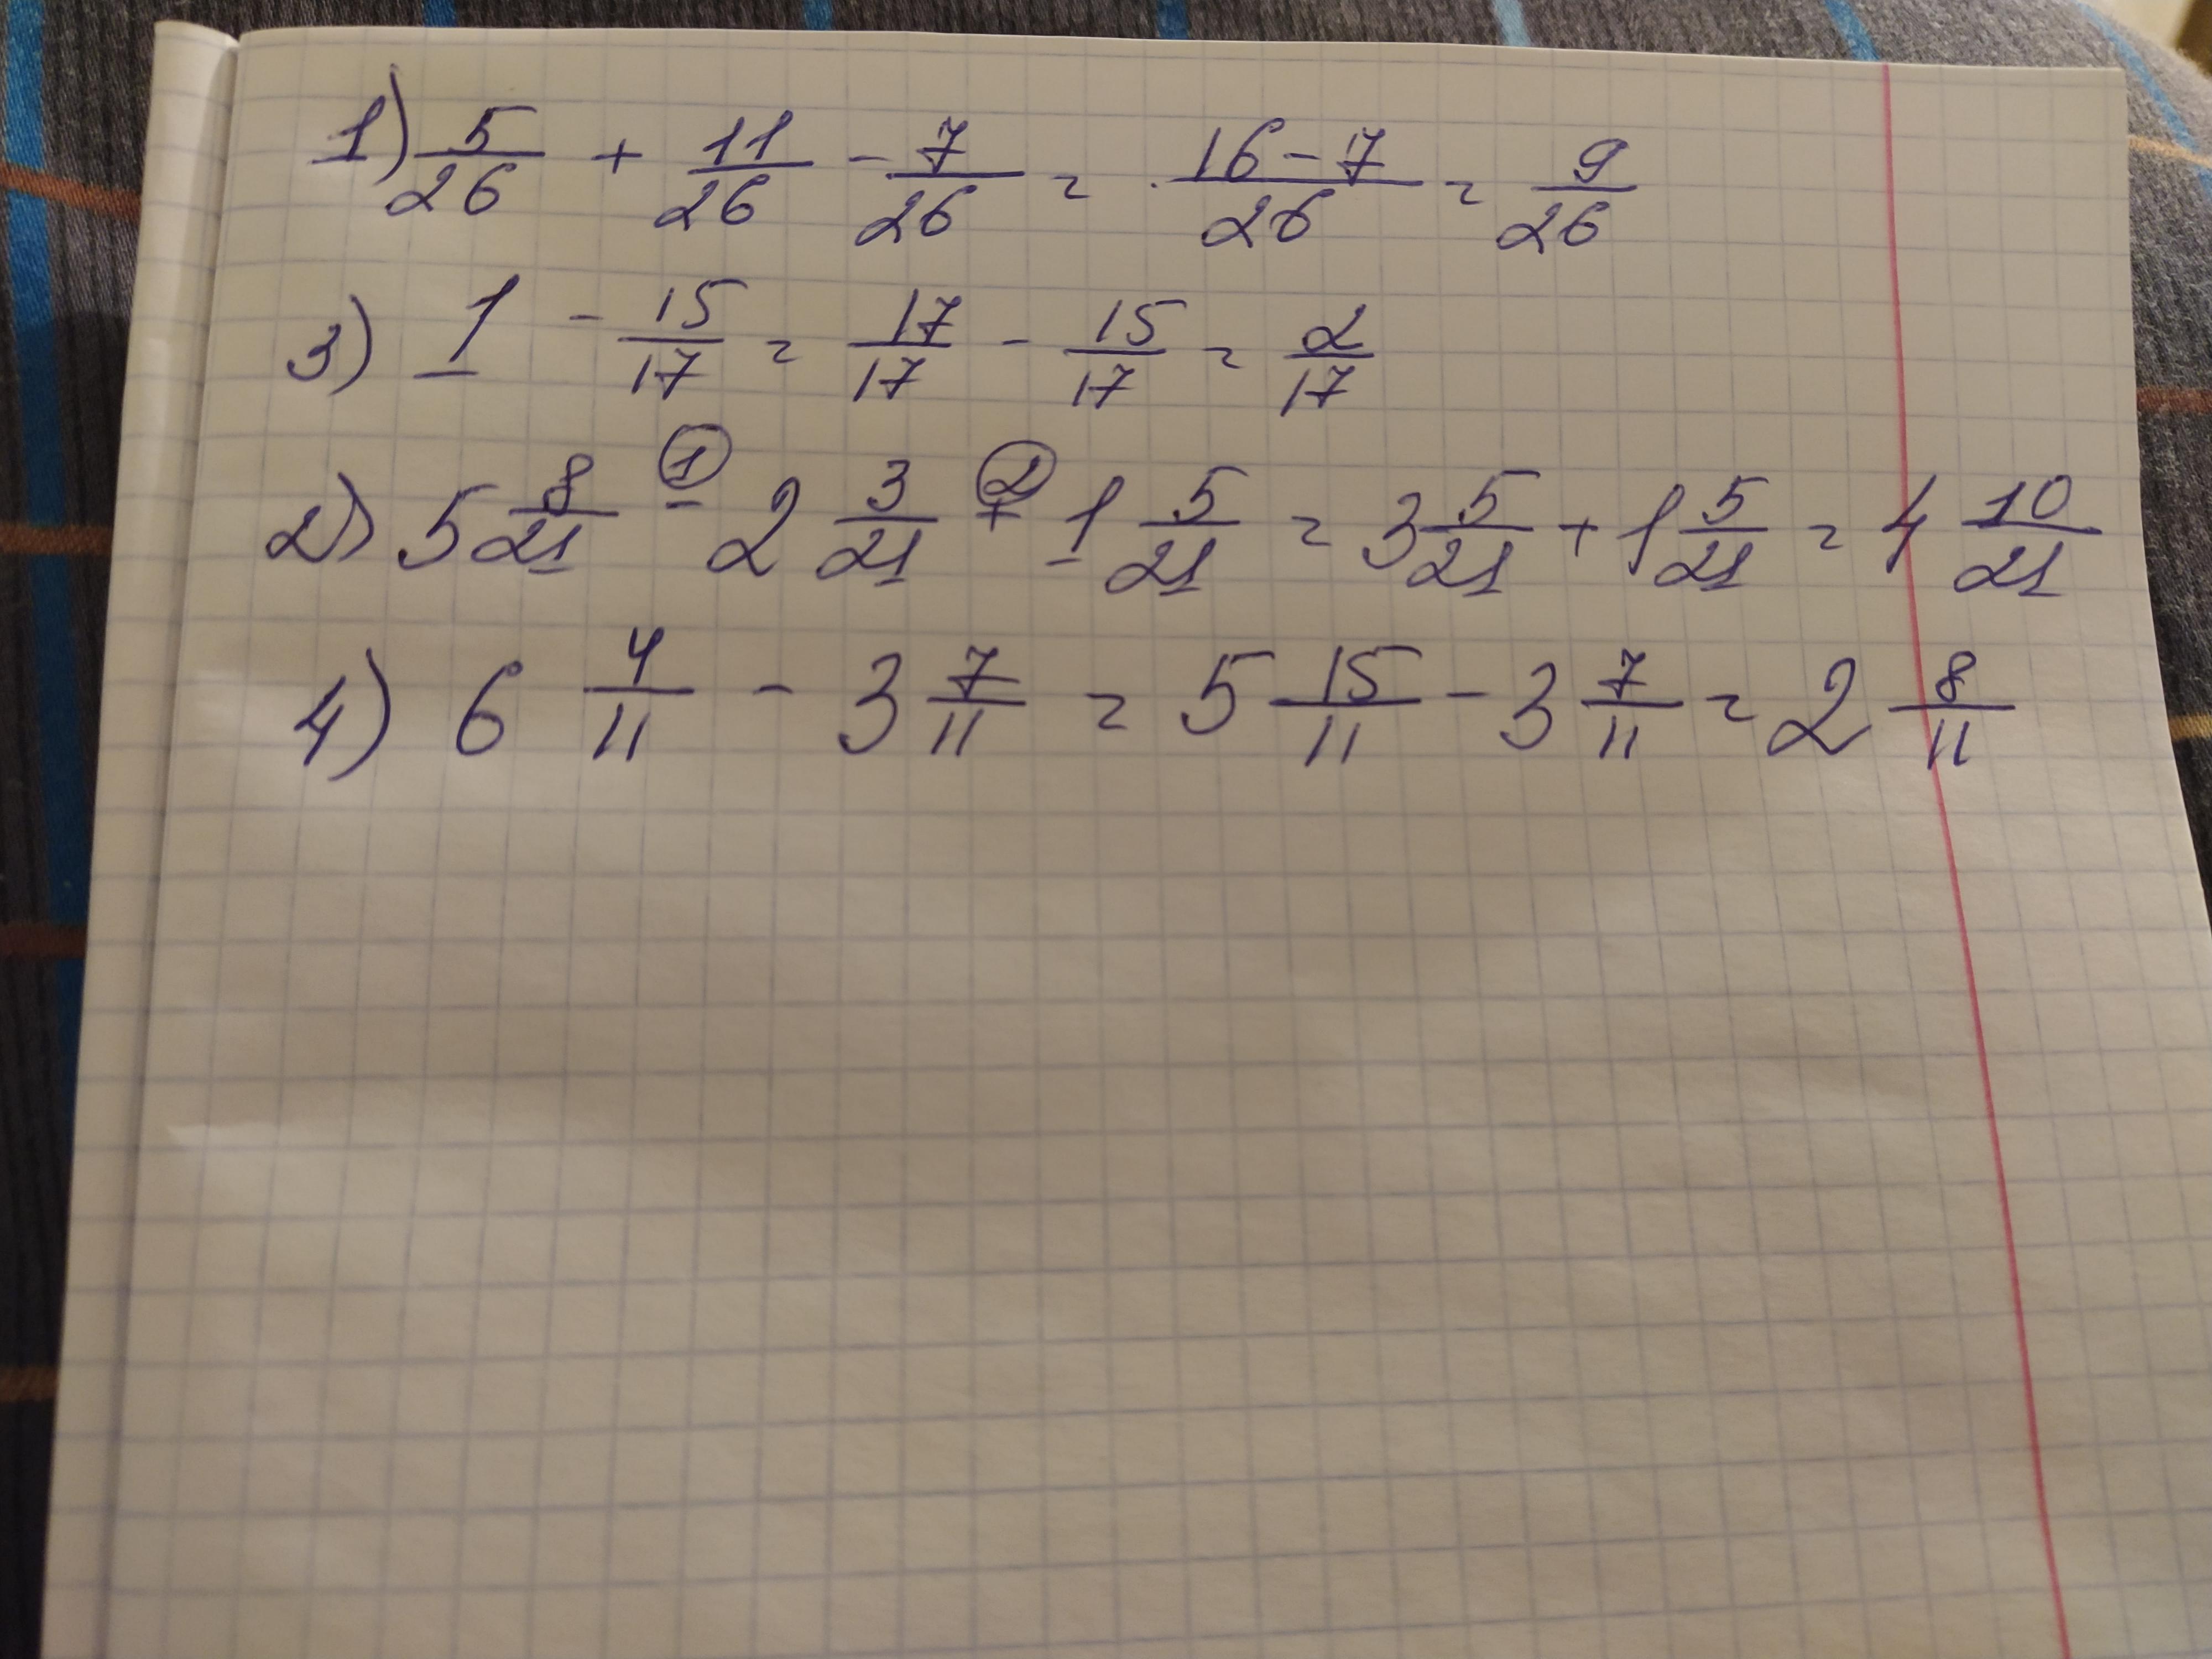 1) 5/26 + 11/26 - 7/26 = 16-7/26 = 9/26
3) 1 - 15/17 = 17/17 - 15/17 = 2/17
2) 5 8/21 -① 2 3/21 +② 1 5/21 = 3 5/21 + 1 5/21 = 4 10/21
4) 6 4/11 - 3 7/11 = 5 15/11 - 3 7/11 = 2 8/11